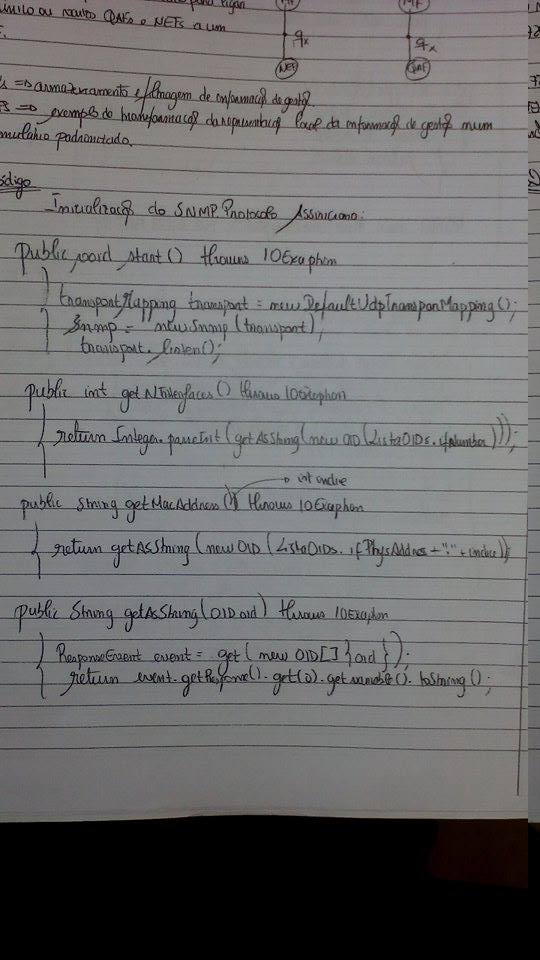 único ou muitos QAFs e NEFs a um
MF
MF
qx
qx
NEF
QAF
=> armazenamento e/Imagem de informação de gestão.
=> exemplo de transformação da representação local da informação de gestão num
formulário padronizado.
código
Inicialização do SNMP Protocolo Assíncrono:
public void start() throws IOException
{ transportMapping transport = new DefaultUdpTransportMapping();
Snmp = new Snmp (transport);
transport.listen();
public int getNInterfaces() throws IOException
{ return Integer.parseInt (getAsString (new OID (ListaOIDs.ifNumber)));
→ int indice
public String getMacAddress() throws IOException
{ return getAsString (new OID (ListaOIDs.ifPhysAddres + "." + indice));
public String getAsString (OID oid) throws IOException
{ ResponseEvent event = get (new OID[] {oid});
return event.getResponse().get(0).getvariable().toString();